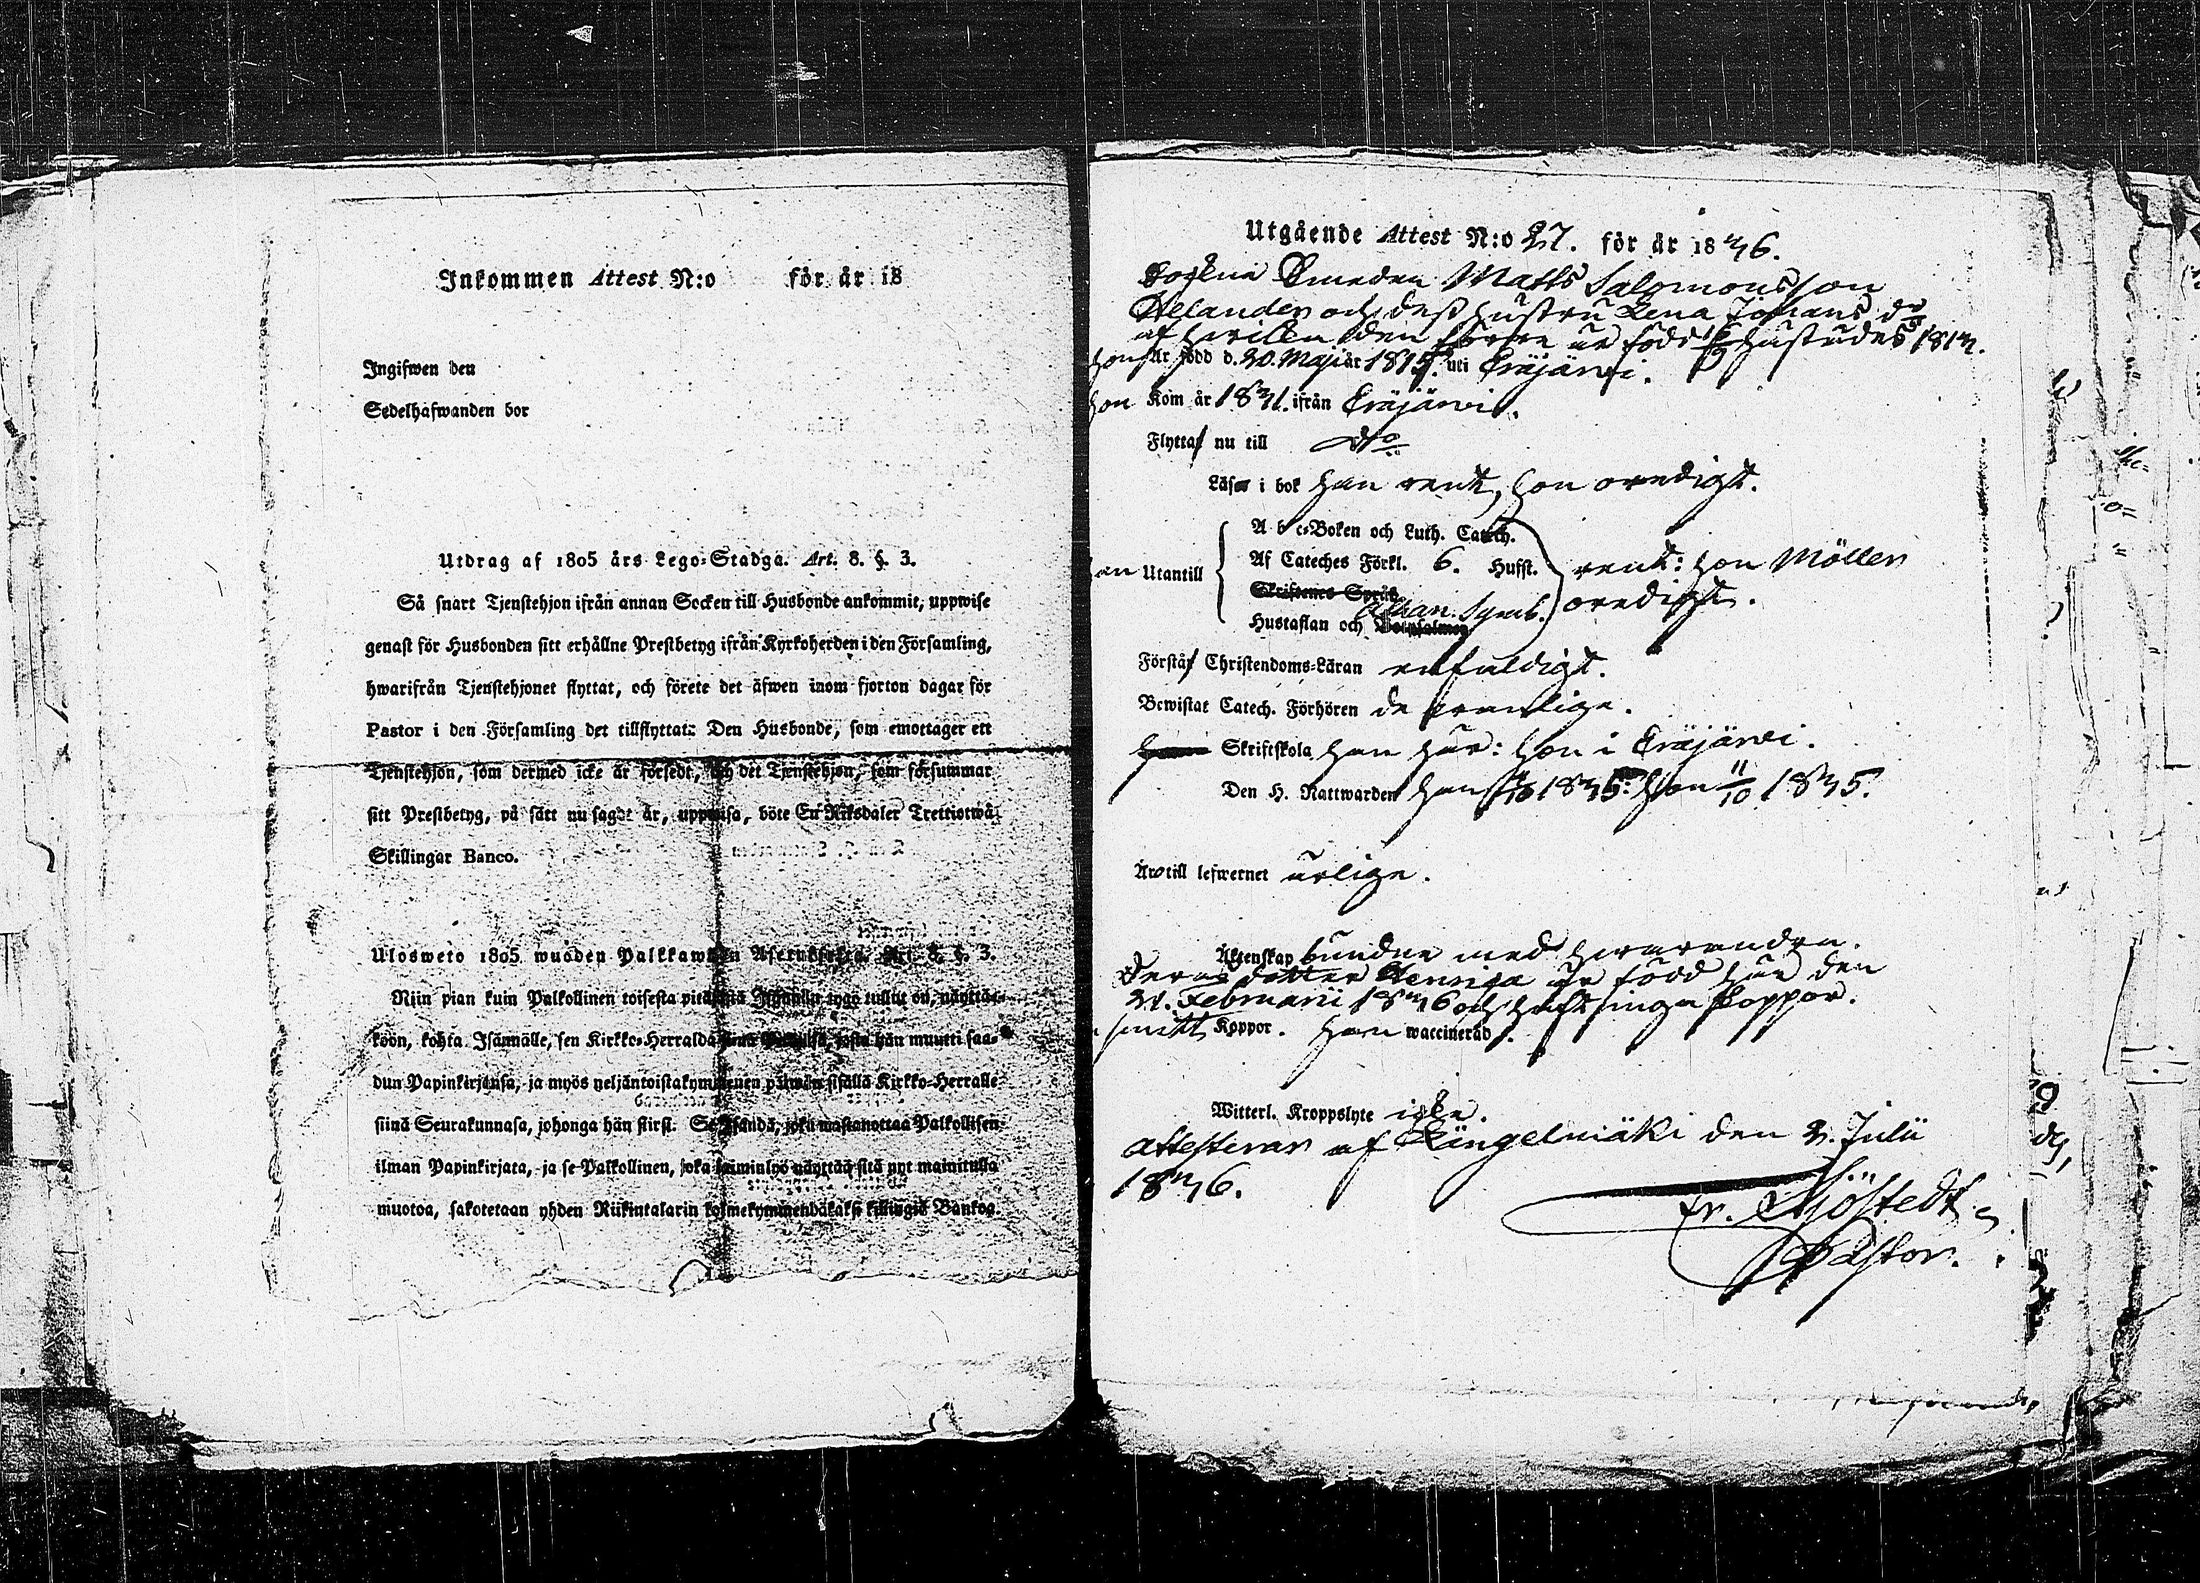 Inkommen Attest N:o för år 18
Ingifwen den
Sedelhafwanden bor
Utdrag af 1805 års Lego-Stadga. Art. 8. §. 3.
Så snart Tjenstehjon ifrån annan Socken till Husbonde ankommit, uppwise
genast för Husbonden sitt erhållne Prestbetyg ifrån Kyrkoherden i den Församling,
hwarifrån Tjenstehjonet flyttat, och förete det äfwen inom fjorton dagar för
Pastor i den Församling det tillflyttat: Den Husbonde, som emottager ett
Tjenstehjon, som dermed icke är försedt, och det Tjenstehjon, som försummar
sitt Prestbetyg, på sätt nu sagdt är, uppwisa, böte En Riksdaler Trettiotwå
Skillingar Banco.
Ulosweto 1805 wuoden Palkkawäen Asetuksesta. Art. 8. §. 3.
Niin pian kuin Palkollinen toisesta pitäjästä Isännän tygö tullut on, näyttä-
köön, kohta Isännälle, sen Kirkko-Herralda siinä josta hän muutti saa-
dun Papinkirjansa, ja myös neljäntoistakymmenen päiwän sisällä Kirkko-Herralle
siinä Seurakunnasa, johonga hän siirsi. Se Isändä, joka wastanottaa Palkollisen
ilman Papinkirjata, ja se Palkollinen, joka laiminlyö näyttää sitä nyt mainitulla
muotoa, sakotetaan yhden Riikintalarin kolmekymmendäkaksi killingiä Bankoa.
Utgående Attest N:o 27. för år 1846.
Sockne Smeden Matts Salomonsson
Helander och dess hustru Lena Johans dr
af hvilka den förre är född 1812.
hon Är född d. 20. Maji år 1815. uti Eräjärvi.
hon Kom år 1841. ifrån Eräjärvi.
Flytta nu till Do
Läsa i bok han rent, hon oredigt.
A b c-Boken och Luth. Catech.
Utantill Af Cateches Förkl. 6. Hufst. rent: hon Möller
Skriftenes Språk oredigt.
Athan. Symb.
Hustaflan och Botpsalmen
Förstå Christendoms-Läran enfaldigt.
Bewistat Catech. Förhören de
Skriftskola han här: hon i Eräjärvi.
Den H. Nattwarden han 1845. hon 11/10 1845.
Äro till lefwernet ärlige.
Äktenskap bundne med hvarandra.
Deras dotter Henrica är född här den
21. Februarii 1846 och haft inga koppor.
Koppor. han waccinerad.
Witterl. Kroppslyte icke.
Attesterar af Längelmäki den 2. Julii
1846.
Fr. Sjöstedt
Pastor.